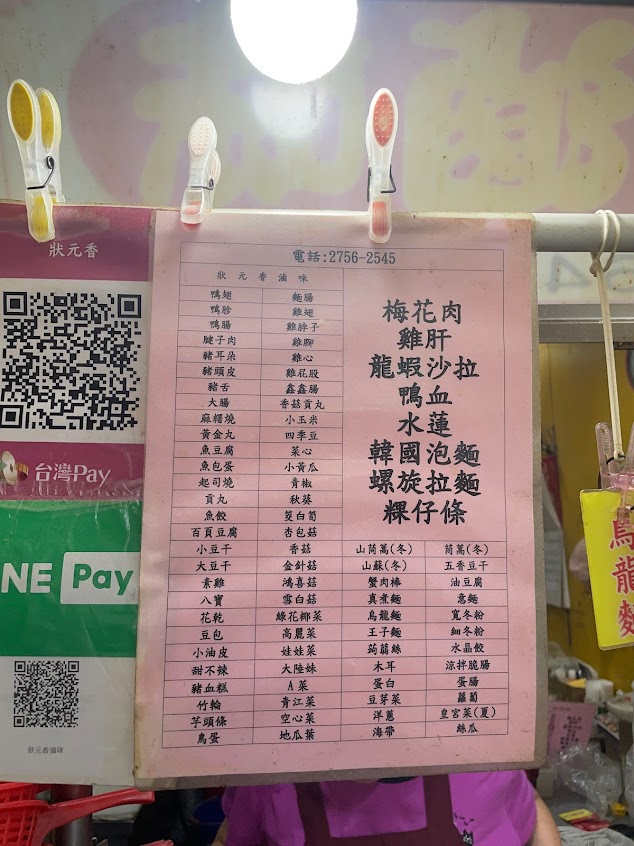 狀元香
台灣Pay
NE Pay
狀元香滷味
電話:2756-2545
狀元香滷味
鴨翅 麵腸
鴨胗 雞翅
鴨腸 雞脖子
腱子肉 雞腳
豬耳朵 雞心
豬頭皮 雞屁股
豬舌 鑫鑫腸
大腸 香菇貢丸
麻糬燒 小玉米
黃金丸 四季豆
魚豆腐 菜心
魚包蛋 小黃瓜
起司燒 青椒
貢丸 秋葵
魚餃 筊白筍
百頁豆腐 杏包菇
梅花肉
雞肝
龍蝦沙拉
鴨血
水蓮
韓國泡麵
螺旋拉麵
粿仔條
小豆干 香菇 山茼萵(冬) 茼萵(冬)
大豆干 金針菇 山蘇(冬) 五香豆干
素雞 鴻喜菇 蟹肉棒 油豆腐
八寶 雪白菇 真煮麵 意麵
花乾 綠花椰菜 烏龍麵 寬冬粉
豆包 高麗菜 王子麵 細冬粉
小油皮 娃娃菜 蒟蒻絲 水晶餃
甜不辣 大陸妹 木耳 涼拌脆腸
豬血糕 A菜 蛋白 蛋腸
竹輪 青江菜 豆芽菜 蘿蔔
芋頭條 空心菜 洋蔥 皇宮菜(夏)
鳥蛋 地瓜葉 海帶 絲瓜
烏龍麵